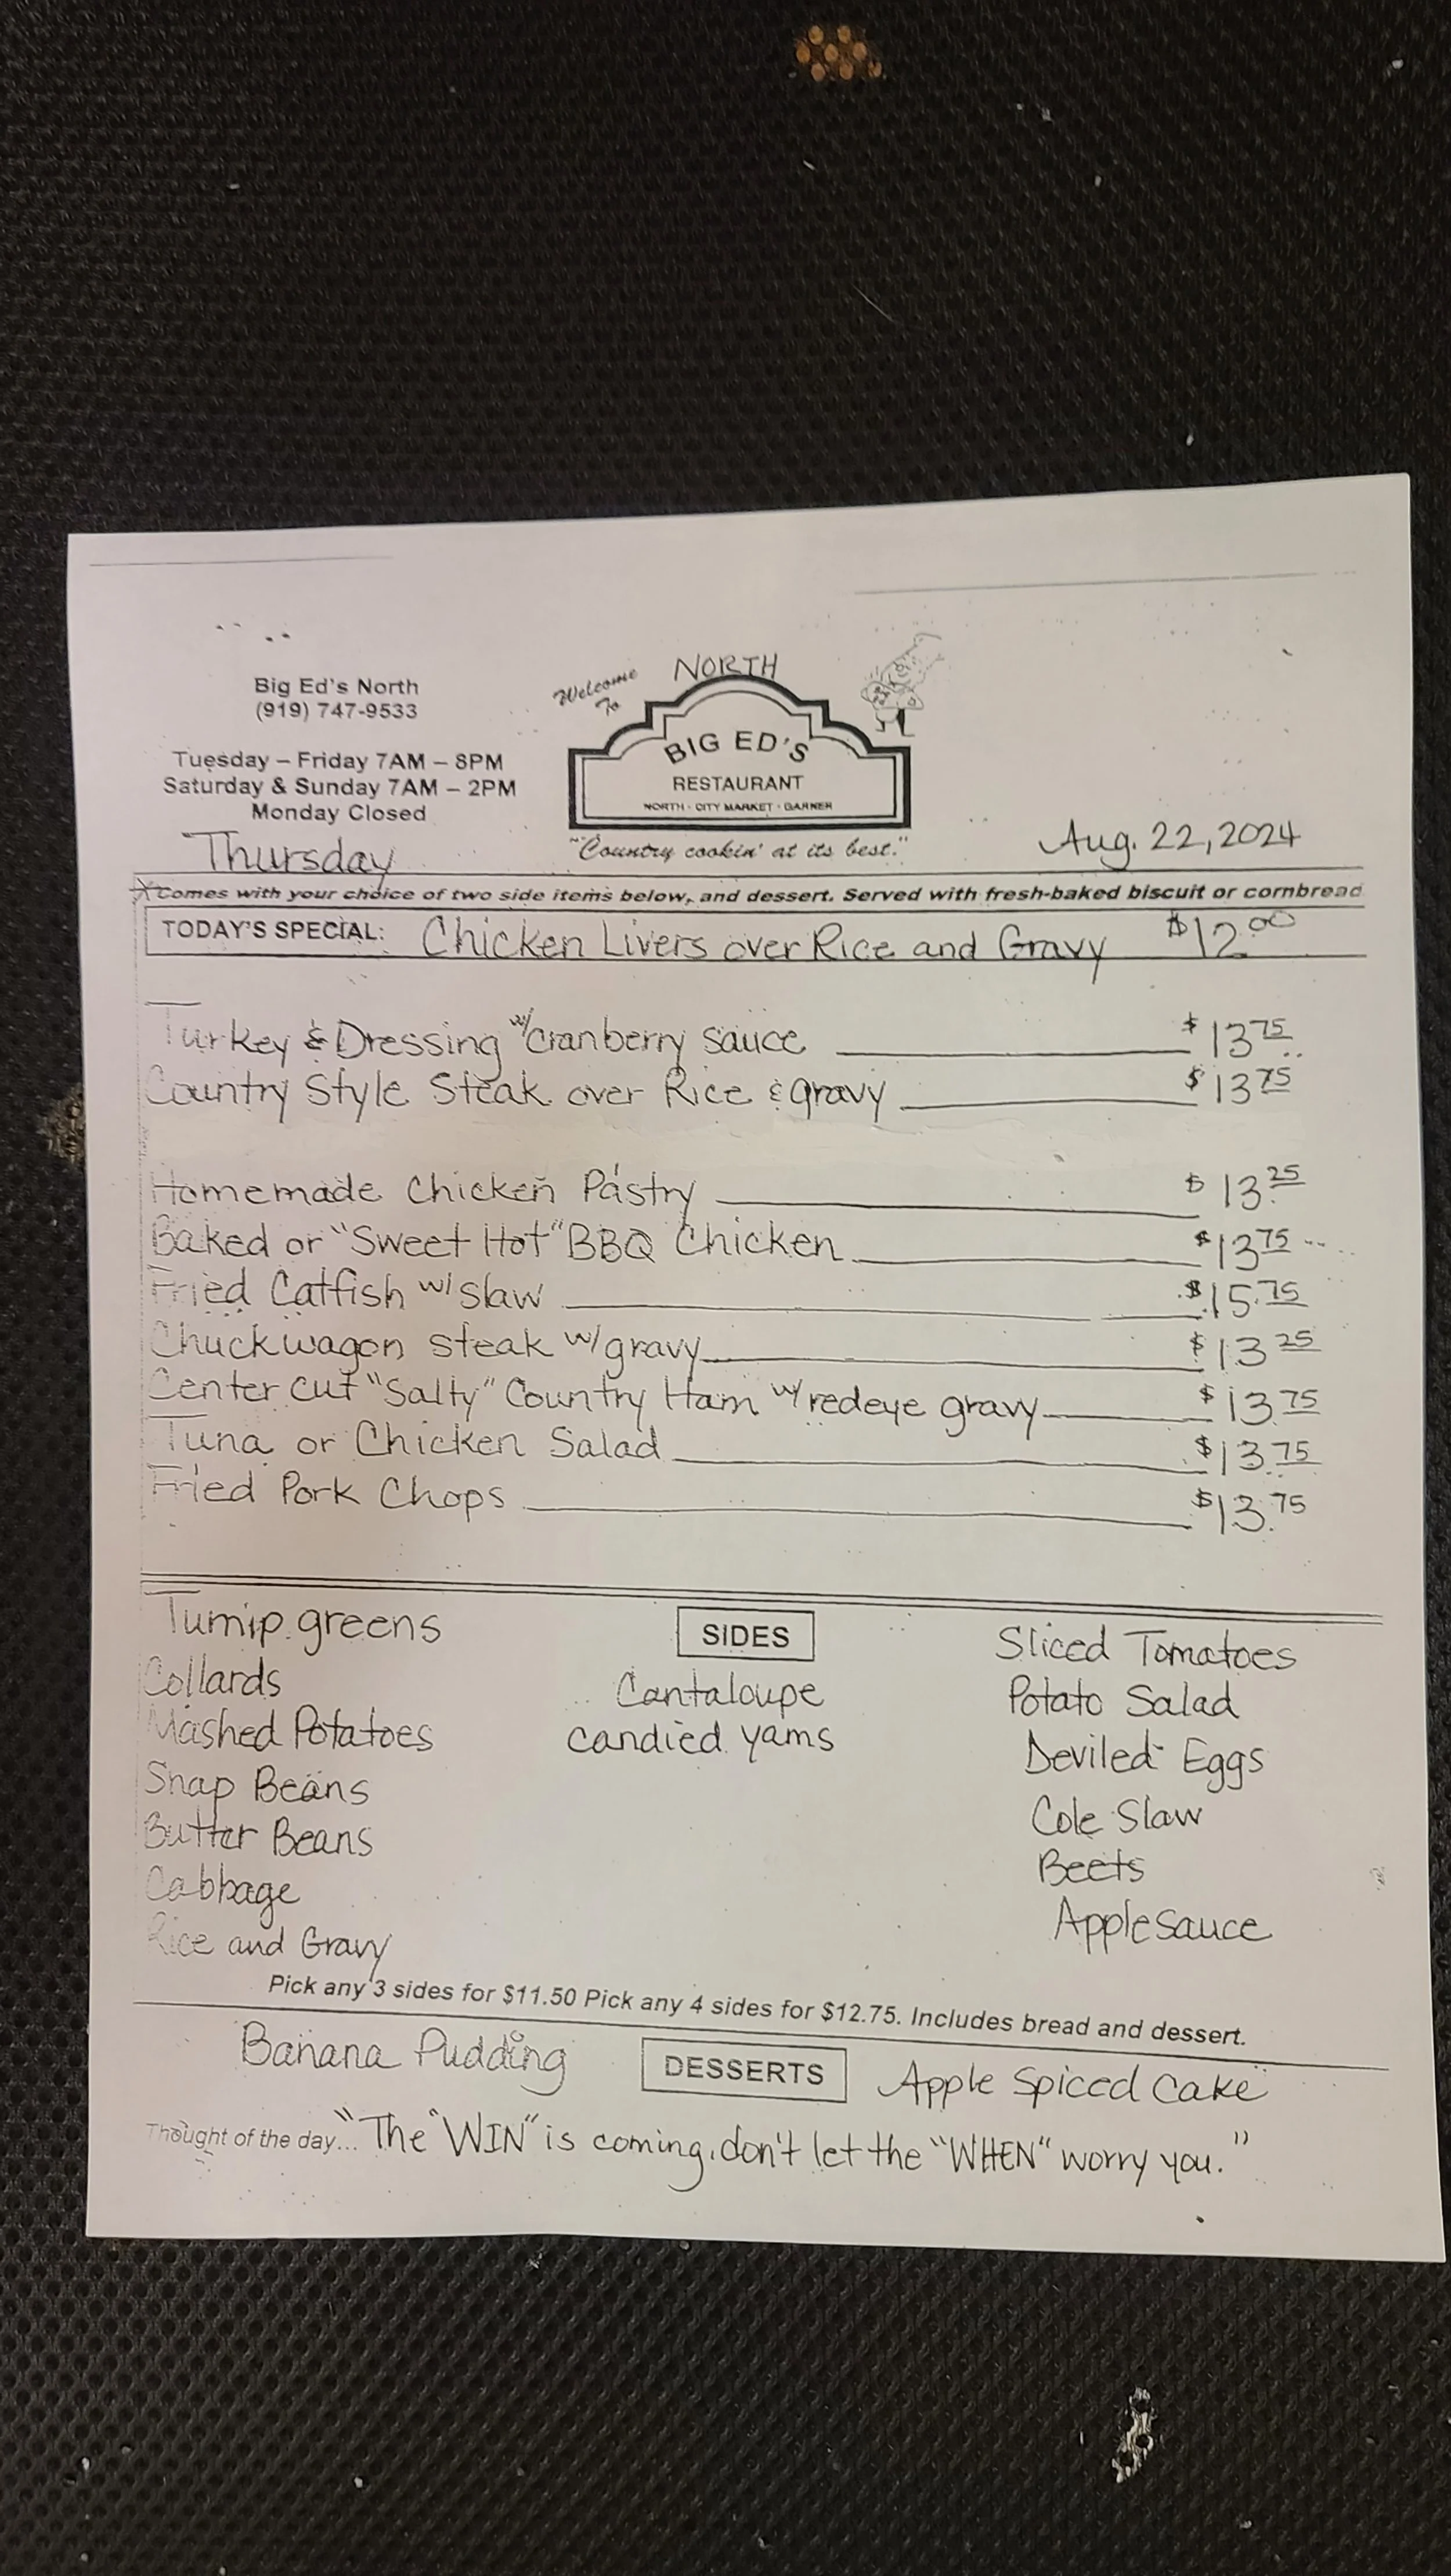 Big Ed's North
(919) 747-9533
Tuesday – Friday 7AM – 8PM
Saturday & Sunday 7AM – 2PM
Monday Closed
Thursday
Welcome
To
NORTH
BIG ED'S
RESTAURANT
NORTH · CITY MARKET · GARNER
"Country cookin' at its best."
Aug. 22, 2024
*Comes with your choice of two side items below, and dessert. Served with fresh-baked biscuit or cornbread
TODAY'S SPECIAL: Chicken Livers over Rice and Gravy $12.00
Turkey & Dressing w/cranberry sauce $13.75
Country Style Steak over Rice & gravy $13.75
Homemade Chicken Pastry $13.25
Baked or "Sweet Hot" BBQ Chicken $13.75
Fried Catfish w/slaw $15.75
Chuckwagon steak w/gravy $13.25
Center cut "Salty" Country Ham w/redeye gravy $13.75
Tuna or Chicken Salad $13.75
Fried Pork Chops $13.75
SIDES
Turnip greens
Collards
Mashed Potatoes
Snap Beans
Butter Beans
Cabbage
Rice and Gravy
Cantaloupe
candied yams
Sliced Tomatoes
Potato Salad
Deviled Eggs
Cole Slaw
Beets
Applesauce
Pick any 3 sides for $11.50 Pick any 4 sides for $12.75. Includes bread and dessert.
Banana Pudding DESSERTS Apple Spiced Cake
Thought of the day... "The "WIN" is coming, don't let the "WHEN" worry you."